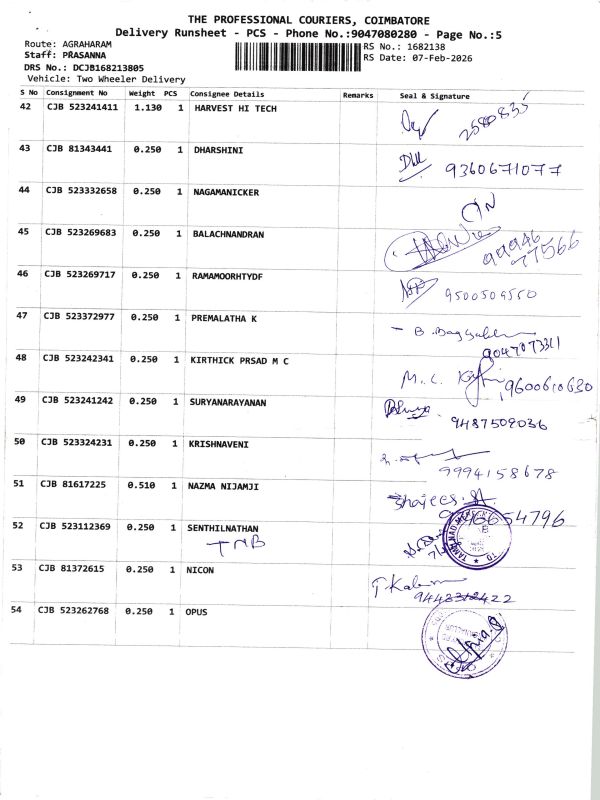 THE PROFESSIONAL COURIERS, COIMBATORE
Delivery Runsheet - PCS - Phone No.:9047080280 - Page No.:5
Route: AGRAHARAM
Staff: PRASANNA
DRS No.: DCJB168213805
Vehicle: Two Wheeler Delivery
RS No.: 1682138
RS Date: 07-Feb-2026
S No Consignment No Weight PCS Consignee Details Remarks Seal & Signature
42 CJB 523241411 1.130 1 HARVEST HI TECH 2580835
43 CJB 81343441 0.250 1 DHARSHINI 9360671077
44 CJB 523332658 0.250 1 NAGAMANICKER
45 CJB 523269683 0.250 1 BALACHNANDRAN 99946
77566
46 CJB 523269717 0.250 1 RAMAMOORHTYDF 9500509550
47 CJB 523372977 0.250 1 PREMALATHA K
48 CJB 523242341 0.250 1 KIRTHICK PRSAD M C M.C. 9600610630
49 CJB 523241242 0.250 1 SURYANARAYANAN 9487509036
50 CJB 523324231 0.250 1 KRISHNAVENI 9994158678
51 CJB 81617225 0.510 1 NAZMA NIJAMJI
52 CJB 523112369 0.250 1 SENTHILNATHAN
TNB
53 CJB 81372615 0.250 1 NICON
54 CJB 523262768 0.250 1 OPUS